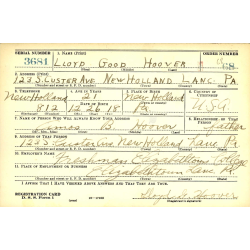 SERIAL NUMBER 1. NAME (Print) ORDER NUMBER
3681 LLOYD GOOD HOOVER
2. ADDRESS (Print)
123 S. CUSTER AV. NEW HOLLAND LANC. PA
3. TELEPHONE 4. AGE IN YEARS 5. PLACE OF BIRTH 6. COUNTRY OF CITIZENSHIP
New Holland 21 New Holland
812 12 26 18 Pa USA
7. NAME OF PERSON WHO WILL ALWAYS KNOW YOUR ADDRESS 8. RELATIONSHIP OF THAT PERSON
Amos B. Hoover father
9. ADDRESS OF THAT PERSON
123 S Custer Ave New Holland Lanc Pa
10. EMPLOYER'S NAME
Freshman Elizabethtown College
11. PLACE OF EMPLOYMENT OR BUSINESS
Elizabethtown Lanc Pa
I AFFIRM THAT I HAVE VERIFIED ABOVE ANSWERS AND THAT THEY ARE TRUE.
REGISTRATION CARD
D. S. S. Form 1
Lloyd G. Hoover